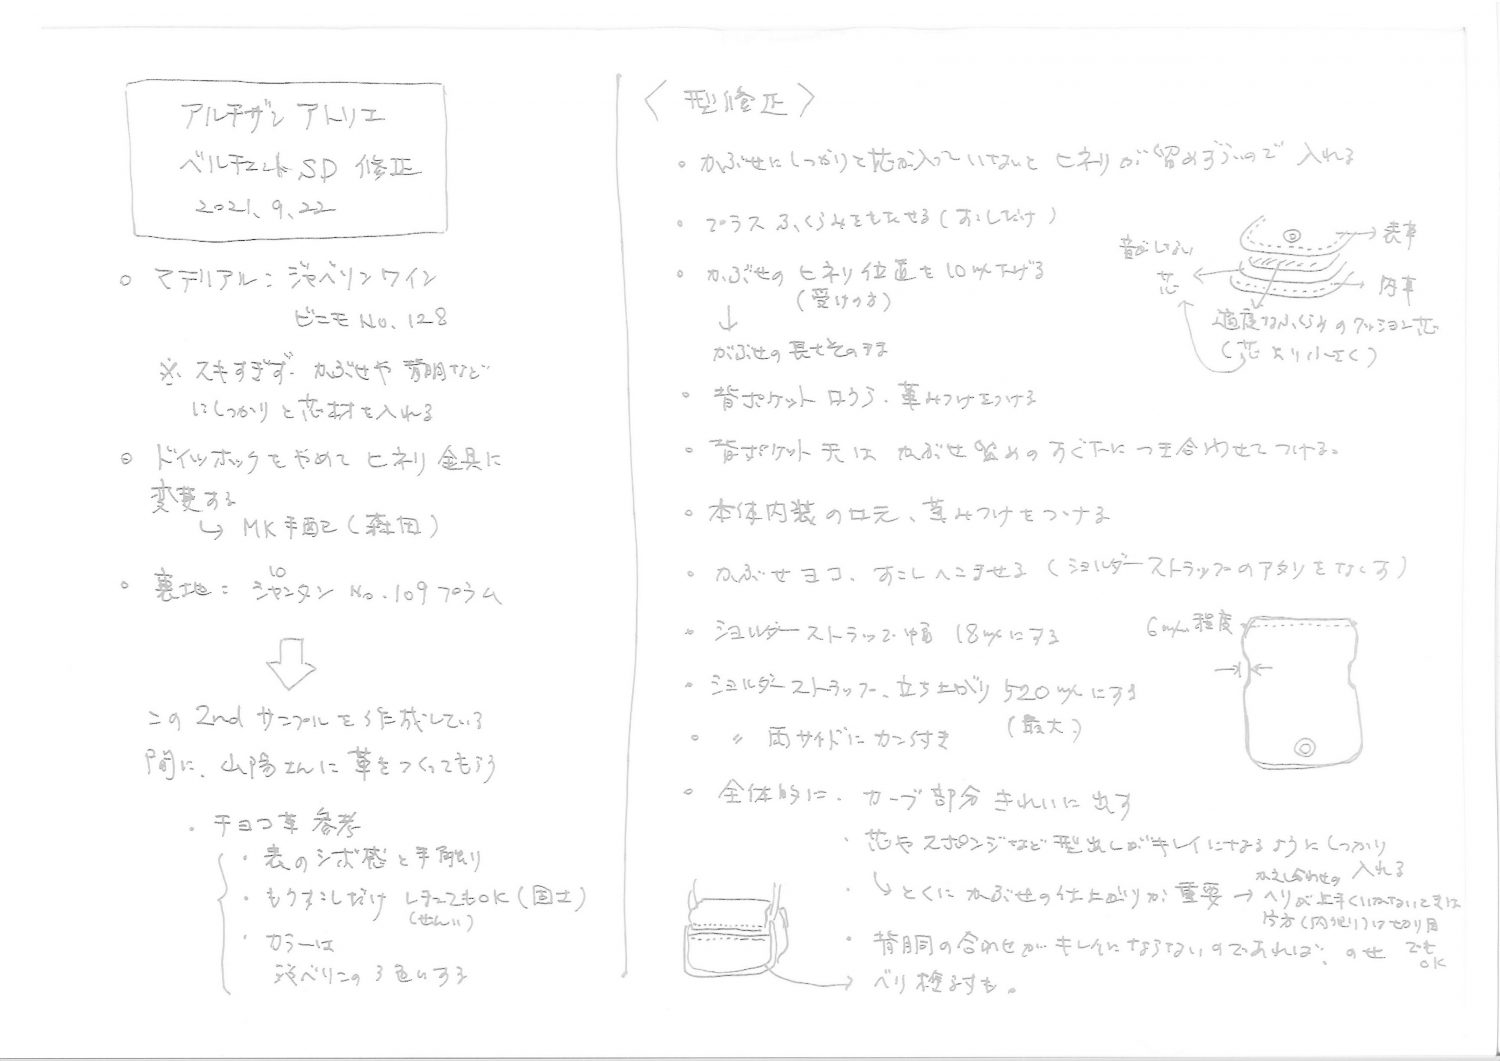 アルチザン アトリエ
ベルチェット SD 修正
2021、9、22
○ マテリアル：ジャベリン ワイン
ビニモ No. 128
※ スキすぎず、かぶせや背胴など
にしっかりと芯材を入れる
○ ドイツホックをやめて ヒネリ金具に
変更する
↳ MK手配（森田）
10
○ 裏地：シャンタン No.109 プラム
この 2nd サンプルを作成している
間に、山陽さんに 革をつくってもらう
・チョコ革 参考
・表のシボ感と手触り
・もうすこしだけ OK
・カラーは
3色にする
〈型修正〉
・かぶせにしっかりと芯が入っていないと ヒネリが留めずらいので 入れる
・プラス ふくらみをもたせる（すこしだけ）
・かぶせの ヒネリ位置を 10㎜下げる
（受けの方）
↓
かぶせの長さそのまま
表革
芯
内革
適度なふくらみのクッション芯
（芯より小さく）
・背ポケット ロウラ、革みつけをつける
・背ポケット 天は かぶせ留めのすぐ下に つき合わせて つける。
・本体内装の口元、革みつけをつける
・かぶせヨコ、すこしへこませる（ショルダーストラップのアタリをなくす）
・ショルダーストラップ巾 18㎜にする
6㎜程度
・ショルダーストラップ、立ち上がり 520㎜にする
（最大）
・〃 両サイドに カン付き
・全体的に、カーブ部分 きれいに 出す
・芯や スポンジなど 型出しがキレイになるようにしっかり
入れる
・↳ とくに かぶせの仕上がりが 重要 → かえし合わせの
ヘリが上手くいかないときは
片方（内側）は切り目
でも
OK
・背胴の合わせが キレイにならないのであれば、のせ
ベリ 検討も。